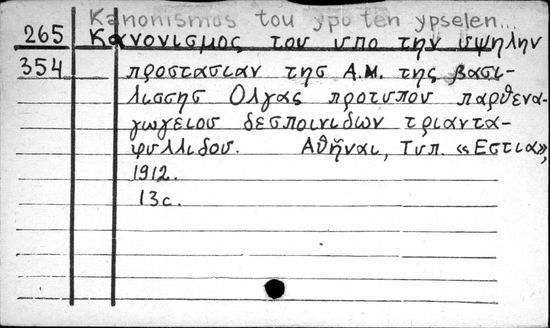 Kanonismos tou ypo ten ypselen...
265 Κανονισμος του υπο την υψηλην
354 προστασιαν της Α.Μ. της βασι-
λισσης Ολγας προτυπου παρθενα-
γωγειου δεσποινιδων τριαντα-
φυλλιδου. Αθῆναι, Τυπ. «Εστια»,
1912.
13c.